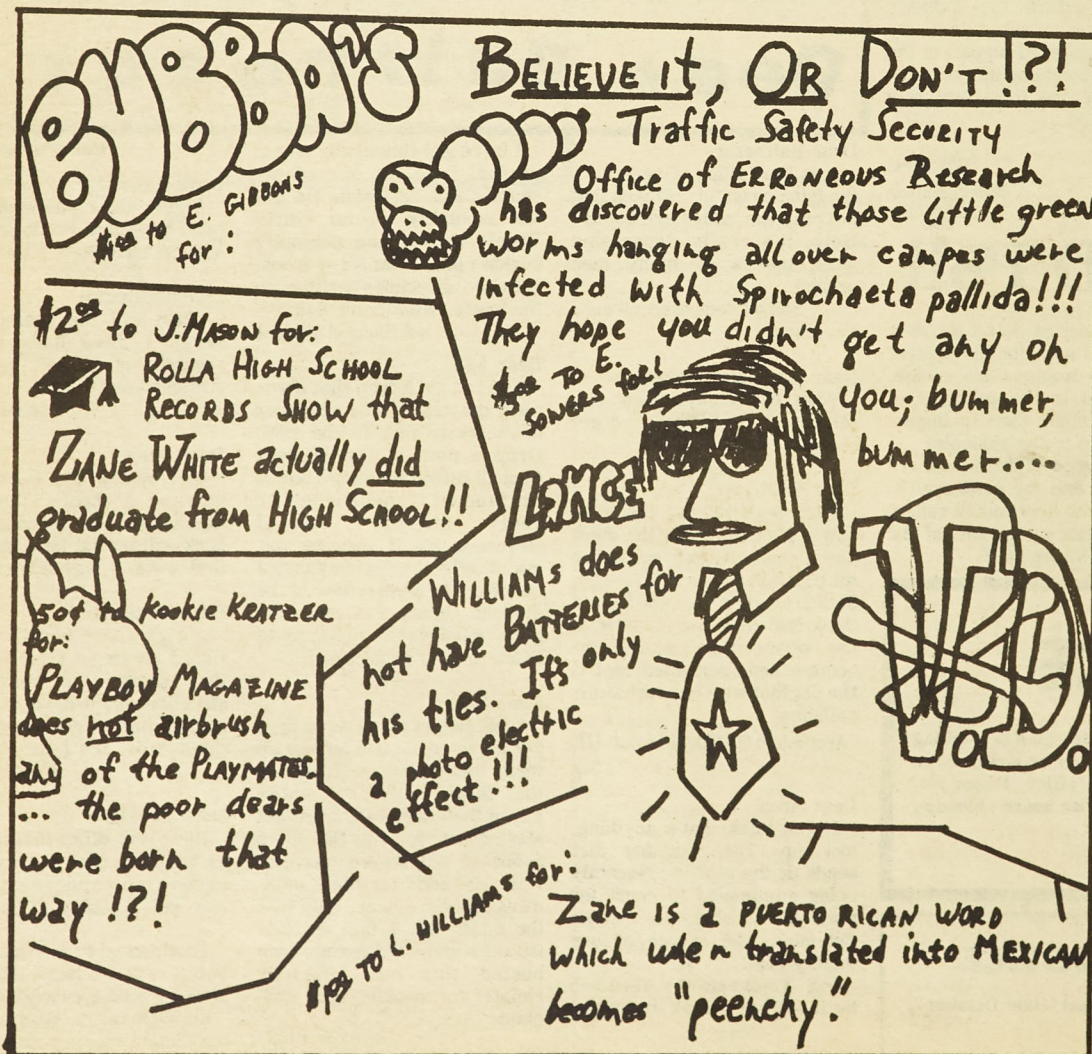 BUBBA'S
BELIEVE it, OR DON'T!?!
$1.00 to E. GIBBONS
for:
Traffic Safety Security
Office of ERRONEOUS Research
has discovered that those little green
worms hanging all over campus were
infected with Spirochaeta pallida!!!
They hope you didn't get any on
you; bummer,
bummer....
V.D.
$2.00 to J. MASON for:
ROLLA HIGH SCHOOL
RECORDS SHOW that
ZANE WHITE actually did
graduate from HIGH SCHOOL!!
TO E.
SOWERS for!
LANCE
WILLIAMS does
not have BATTERIES for
his ties. It's only
a photo electric
effect!!!
50¢ to Kookie KRATZER
for:
PLAYBOY MAGAZINE
does not airbrush
any of the PLAYMATES.
... the poor dears
were born that
way!?!
TO L. WILLIAMS for:
Zane IS a PUERTO RICAN WORD
which when translated into MEXICAN
becomes "peenchy."